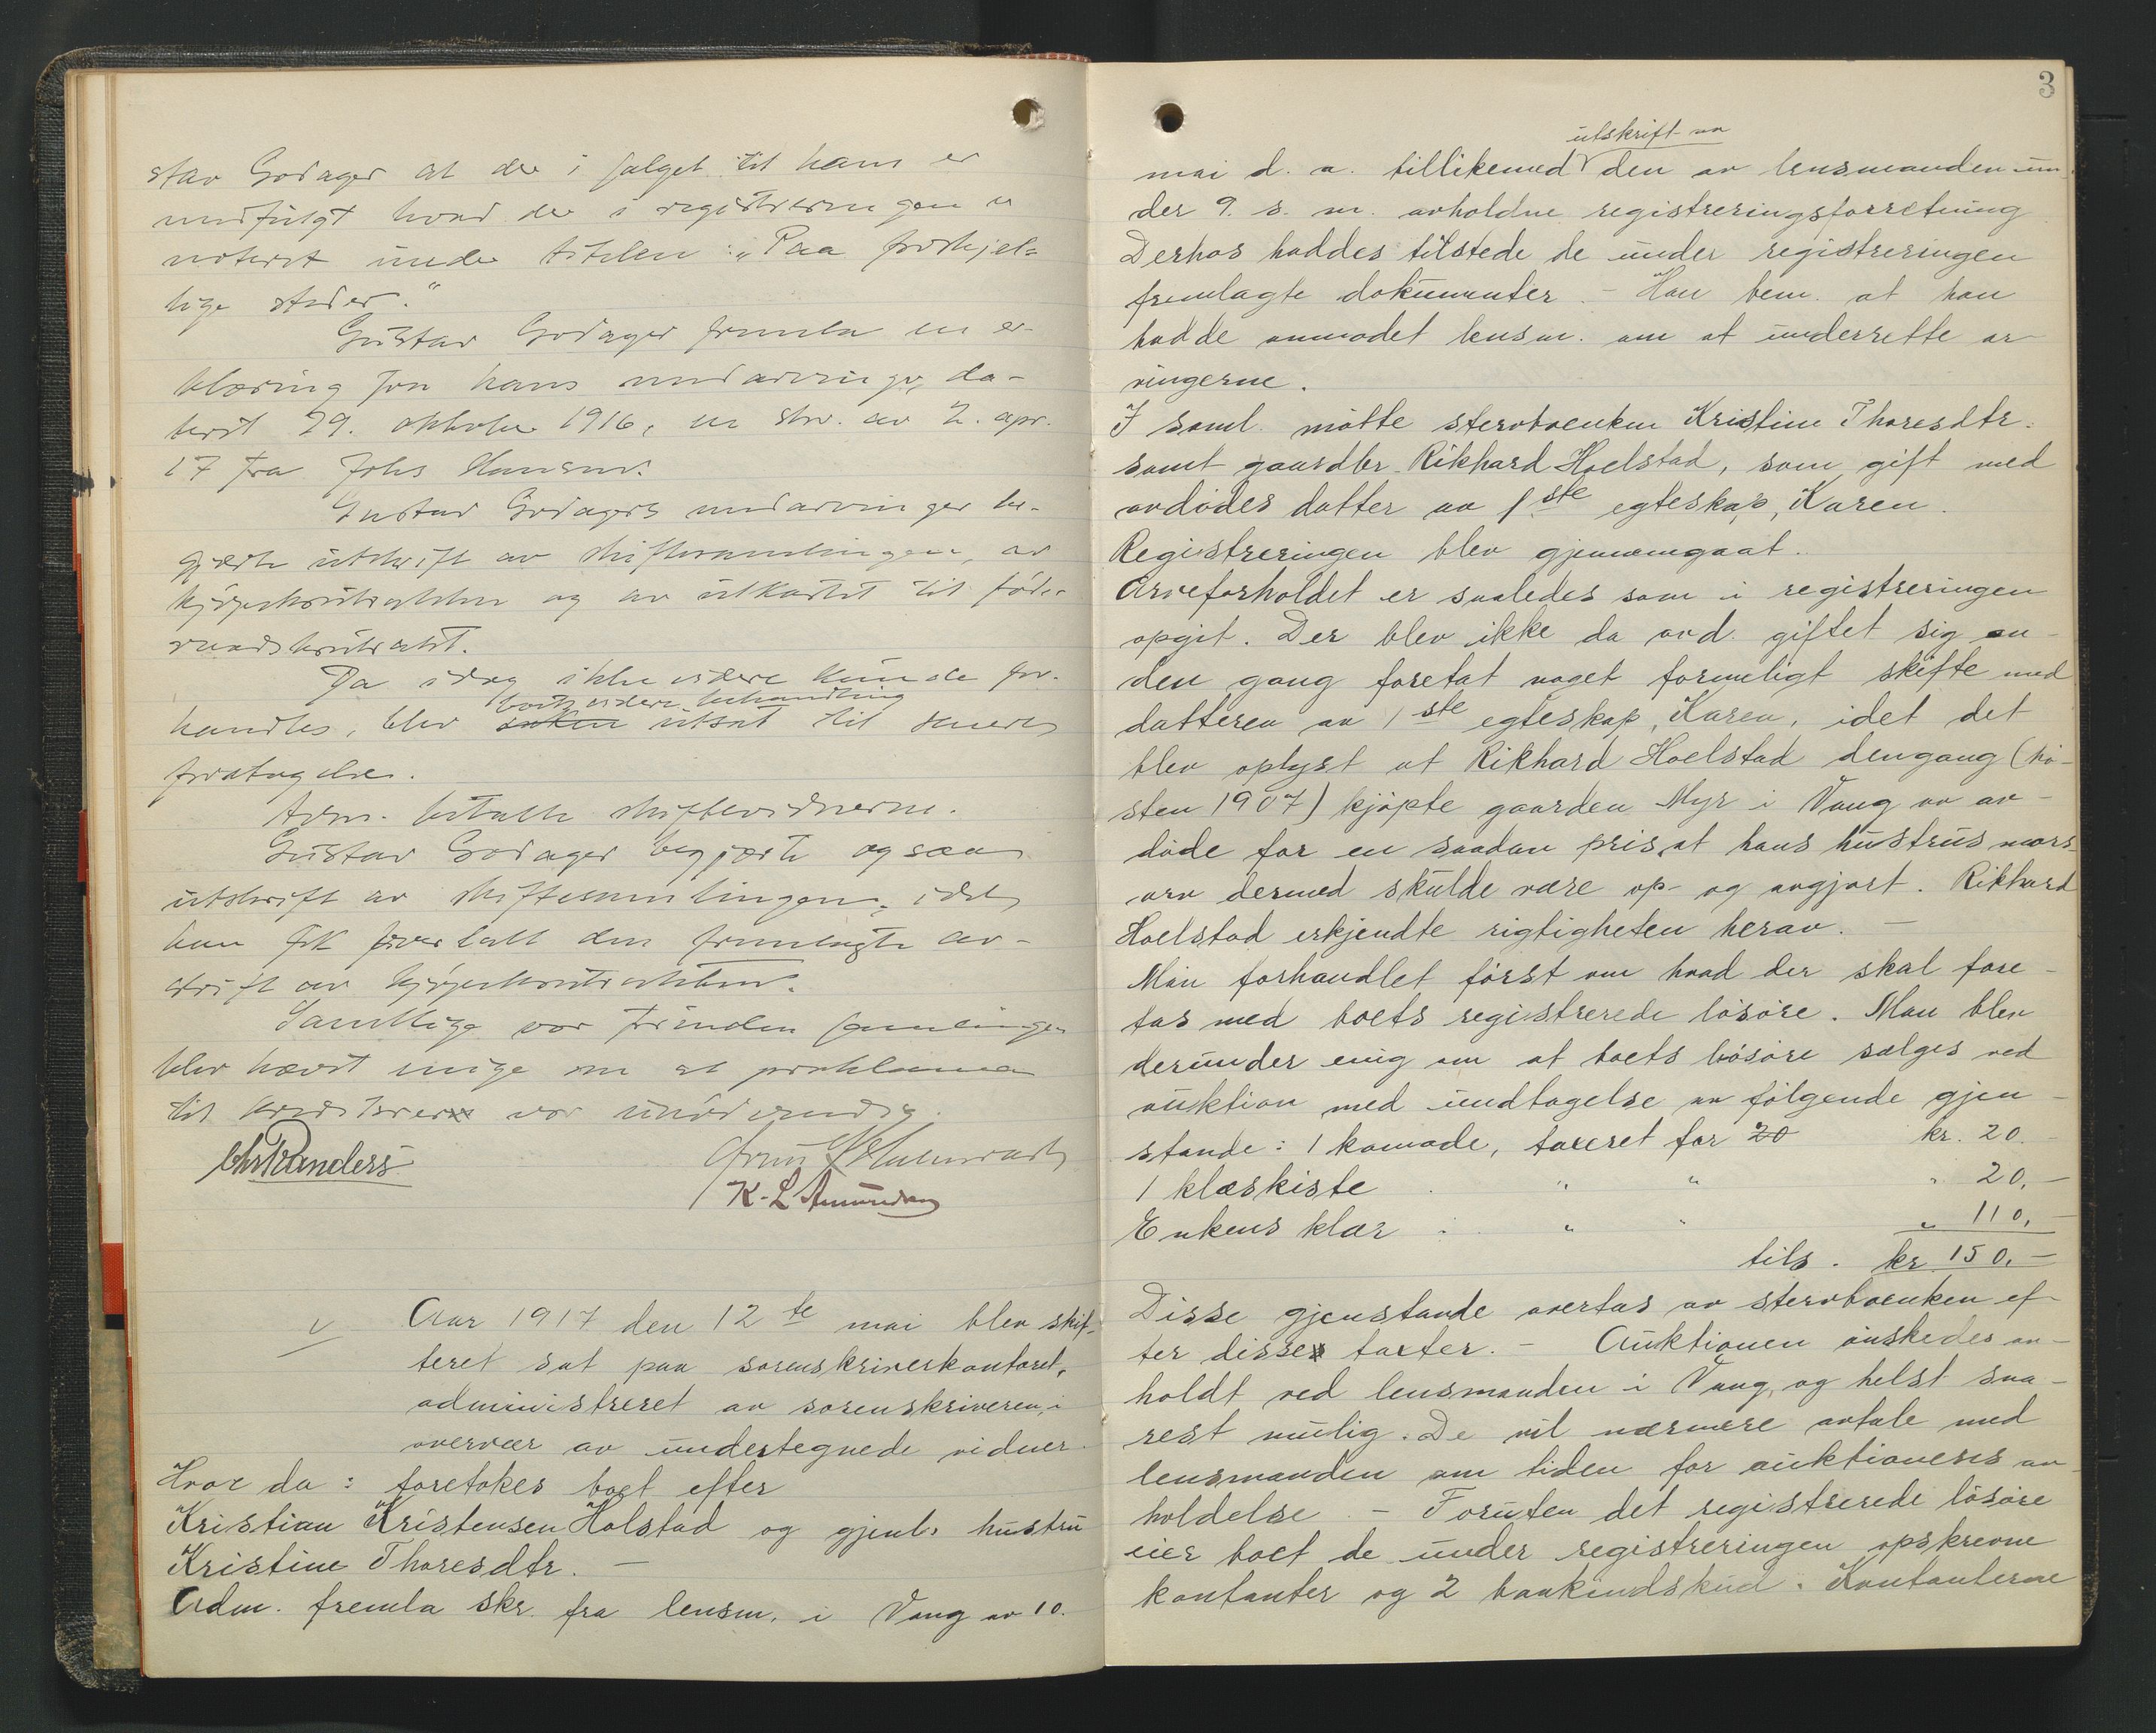 stav Godager at der i salget til ham er
medfulgt hvad der i registreringen er
notert under titelen: „Paa forskjel-
lige steder."
Gustav Godager fremla en er-
klæring fra hans medarvinger, da-
tert 29. oktober 1916, en skr. av 2. apr.
17 fra Johs Hansen.
Gustav Godagers medarvinger be-
gjærte utskrift av skiftesamlingen, av
kjøpekontrakten og av utkastet til føde-
raadskontrakt.
Da idag ikke videre kunde for-
boets videre behandling
handles, blev saken utsat til senere
foretagelse.
Adm. betalte skiftevidnerne.
Gustav Godager begjærte ogsaa
utskrift av skiftesamlingen, idet
han fik overlatt den fremlagte av-
skrift av kjøpekontrakten.
Samtlige var under samlingen
blev hævet enige om at proklama
til kreditorer var unødvendig.
Chr Randers
K. L. Amundsen
Aar 1917 den 12te mai blev skif-
teret sat paa sorenskriverkontoret,
administreret av sorenskriveren, i
overvær av undertegnede vidner.
Hvor da: foretokes boet efter
Kristian Kristensen Holstad og gjenl. hustru
Kristine Thoresdtr. —
Adm. fremla skr. fra lensm. i Vang av 10.
3
utskrift av
mai d. a. tillikemed den av lensmanden un-
der 9. s. m. avholdne registreringsforretning
Derhos haddes tilstede de under registreringen
fremlagte dokumenter. – Han bem. at han
hadde anmodet lensm. om at underrette ar-
vingerne.
I saml. møtte stervboenken Kristine Thoresdtr.
samt gaardbr. Rikhard Hoelstad, som gift med
avdødes datter av 1ste egteskap, Karen.
Registreringen blev gjennemgaat.
Arveforholdet er saaledes som i registreringen
opgit. Der blev ikke da avd. giftet sig an-
den gang foretat noget formeligt skifte med
datteren av 1ste egteskap, Karen, idet det
blev oplyst at Rikhard Hoelstad dengang (hø-
sten 1907) kjøpte gaarden Myr i Vang av av-
døde for en saadan pris, at hans hustrus mors-
arv dermed skulde være op- og avgjort. Rikhard
Hoelstad erkjendte rigtigheten herav. —
Man forhandlet først om hvad der skal fore-
tas med boets registrerede løsøre. Man blev
derunder enig om at boets løsøre sælges ved
auktion med undtagelse av følgende gjen-
stande: 1 komode, taxeret for 20 kr. 20.
1 klæskiste . " " " 20,—
Enkens klær : " " " 110,—
tils. kr. 150,—
Disse gjenstande overtas av stervboenken ef-
ter disse taxter. – Auktionen ønskedes av-
holdt ved lensmanden i Vang, og helst sna-
rest mulig. De vil nærmere avtale med
lensmanden om tiden for auktionens av-
holdelse. – Foruten det registrerede løsøre
eier boet de under registreringen opskrevne
kontanter og 2 bankindskud. Kontanterne